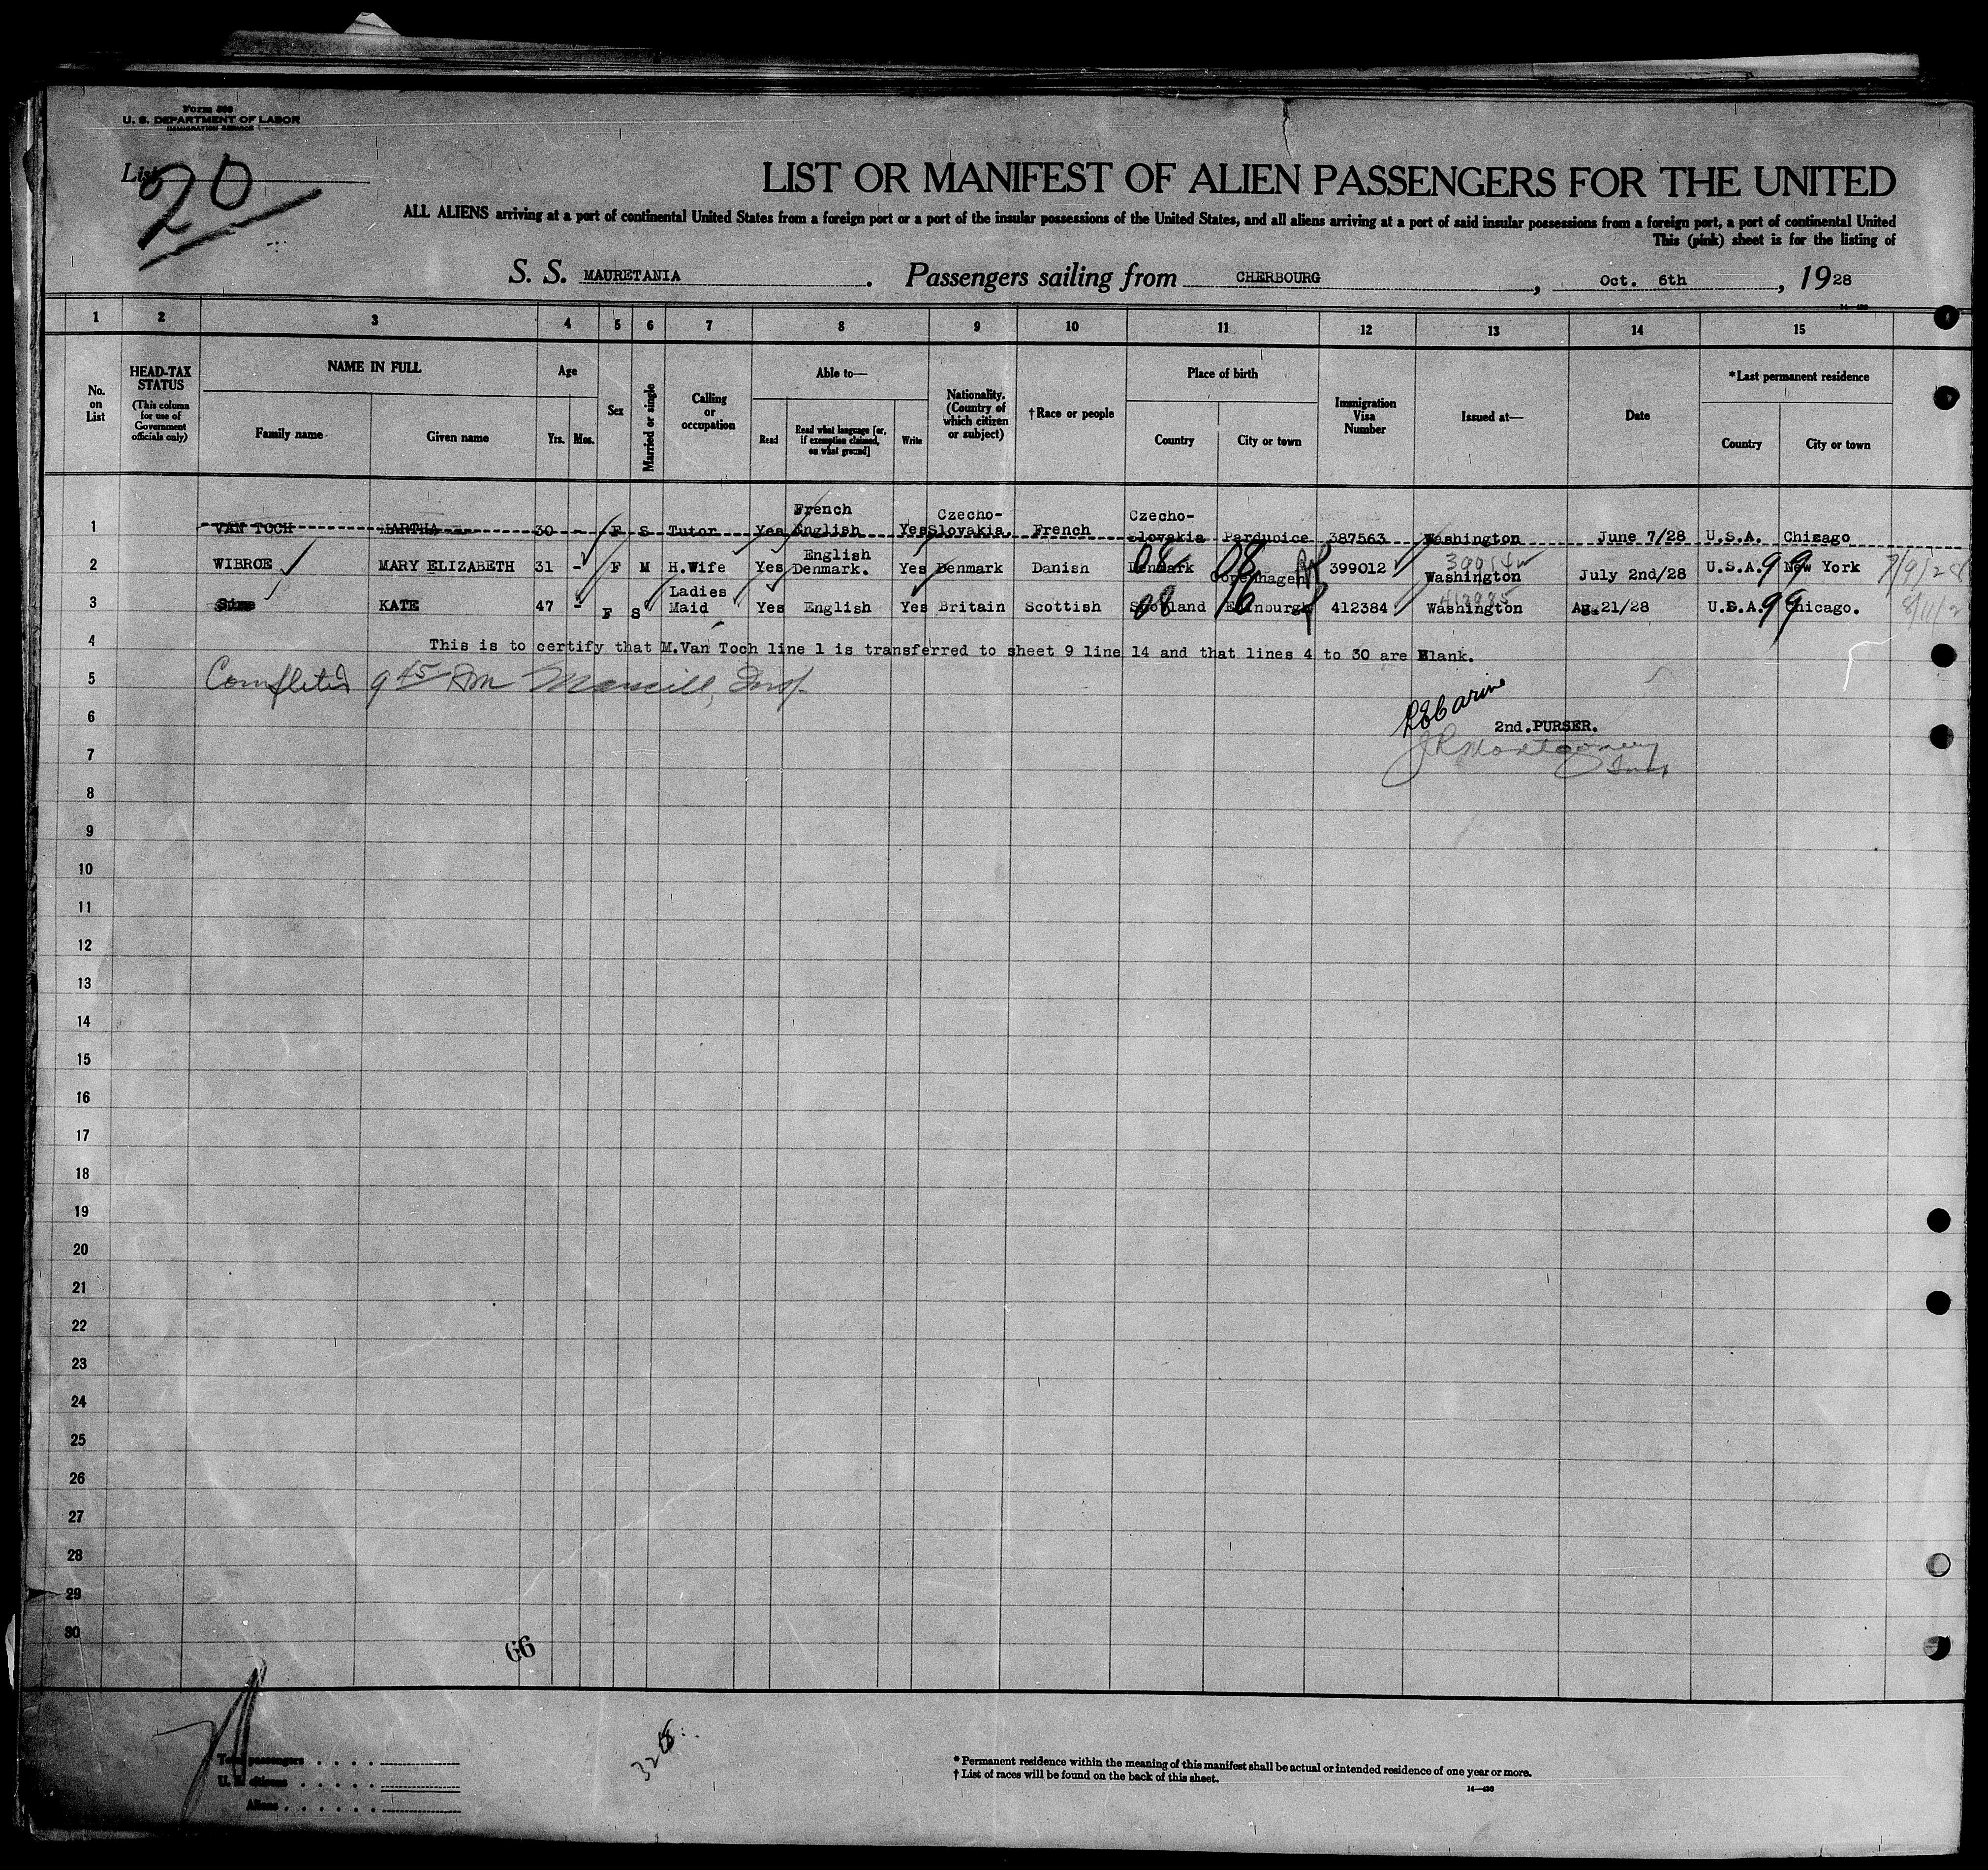 Form 500
U. S. DEPARTMENT OF LABOR
IMMIGRATION SERVICE
List 20
LIST OR MANIFEST OF ALIEN PASSENGERS FOR THE UNITED
ALL ALIENS arriving at a port of continental United States from a foreign port or a port of the insular possessions of the United States, and all aliens arriving at a port of said insular possessions from a foreign port, a port of continental United
This (pink) sheet is for the listing of
S. S. MAURETANIA . Passengers sailing from CHERBOURG , Oct. 6th , 1928
1 2 3 4 5 6 7 8 9 10 11 12 13 14 15
No. on List
HEAD-TAX STATUS (This column for use of Government officials only)
NAME IN FULL
Family name Given name
Age
Yrs. Mos.
Sex
Married or single
Calling or occupation
Able to—
Read Read what language [or, if exemption claimed, on what ground] Write
Nationality. (Country of which citizen or subject)
† Race or people
Place of birth
Country City or town
Immigration Visa Number
Issued at—
Date
*Last permanent residence
Country City or town
1 VAN TOCH MARTHA 30 - F S Tutor Yes French English Yes Czecho-Slovakia. French Czecho-Slovakia Pardubice 387563 Washington June 7/28 U.S.A. Chicago
2 WIBROE MARY ELIZABETH 31 - F M H.Wife Yes English Denmark. Yes Denmark Danish Denmark Copenhagen 399012 Washington July 2nd/28 U.S.A. New York
08 08 99 7/9/28
3 Sims KATE 47 - F S Ladies Maid Yes English Yes Britain Scottish Scotland Edinburgh 412384 Washington Ag.21/28 U.S.A. Chicago.
08 16 412985 99
4 This is to certify that M.Van Toch line 1 is transferred to sheet 9 line 14 and that lines 4 to 30 are Blank.
5 Completed 9 45 Am
6 2nd.PURSER.
7 J R Montgomery
8
9
10
11
12
13
14
15
16
17
18
19
20
21
22
23
24
25
26
27
28
29
30
66
328
Total passengers
U. S. citizens
Aliens
* Permanent residence within the meaning of this manifest shall be actual or intended residence of one year or more.
† List of races will be found on the back of this sheet.
14—430